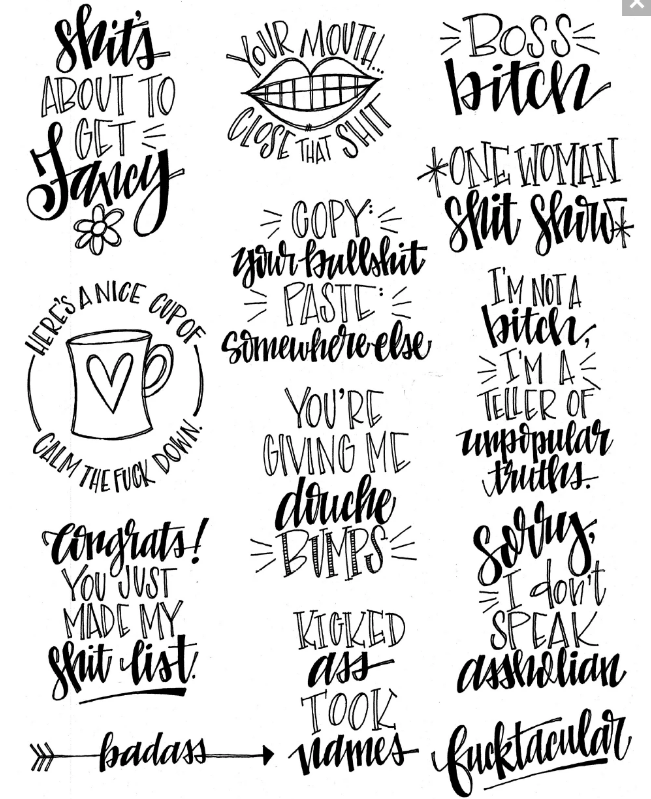 Shit's
ABOUT TO
GET
Fancy
HERE'S A NICE CUP OF
CALM THE FUCK DOWN.
Congrats!
YOU JUST
MADE MY
shit list.
badass
YOUR MOUTH...
CLOSE THAT SHIT
COPY:
your bullshit
PASTE:
somewhere else
YOU'RE
GIVING ME
douche
BUMPS
KICKED
ass
TOOK
names
BOSS
bitch
*ONE WOMAN
Shit Show*
I'M NOT A
bitch,
I'M A
TELLER OF
unpopular
truths.
Sorry,
I don't
SPEAK
assholian
fucktacular